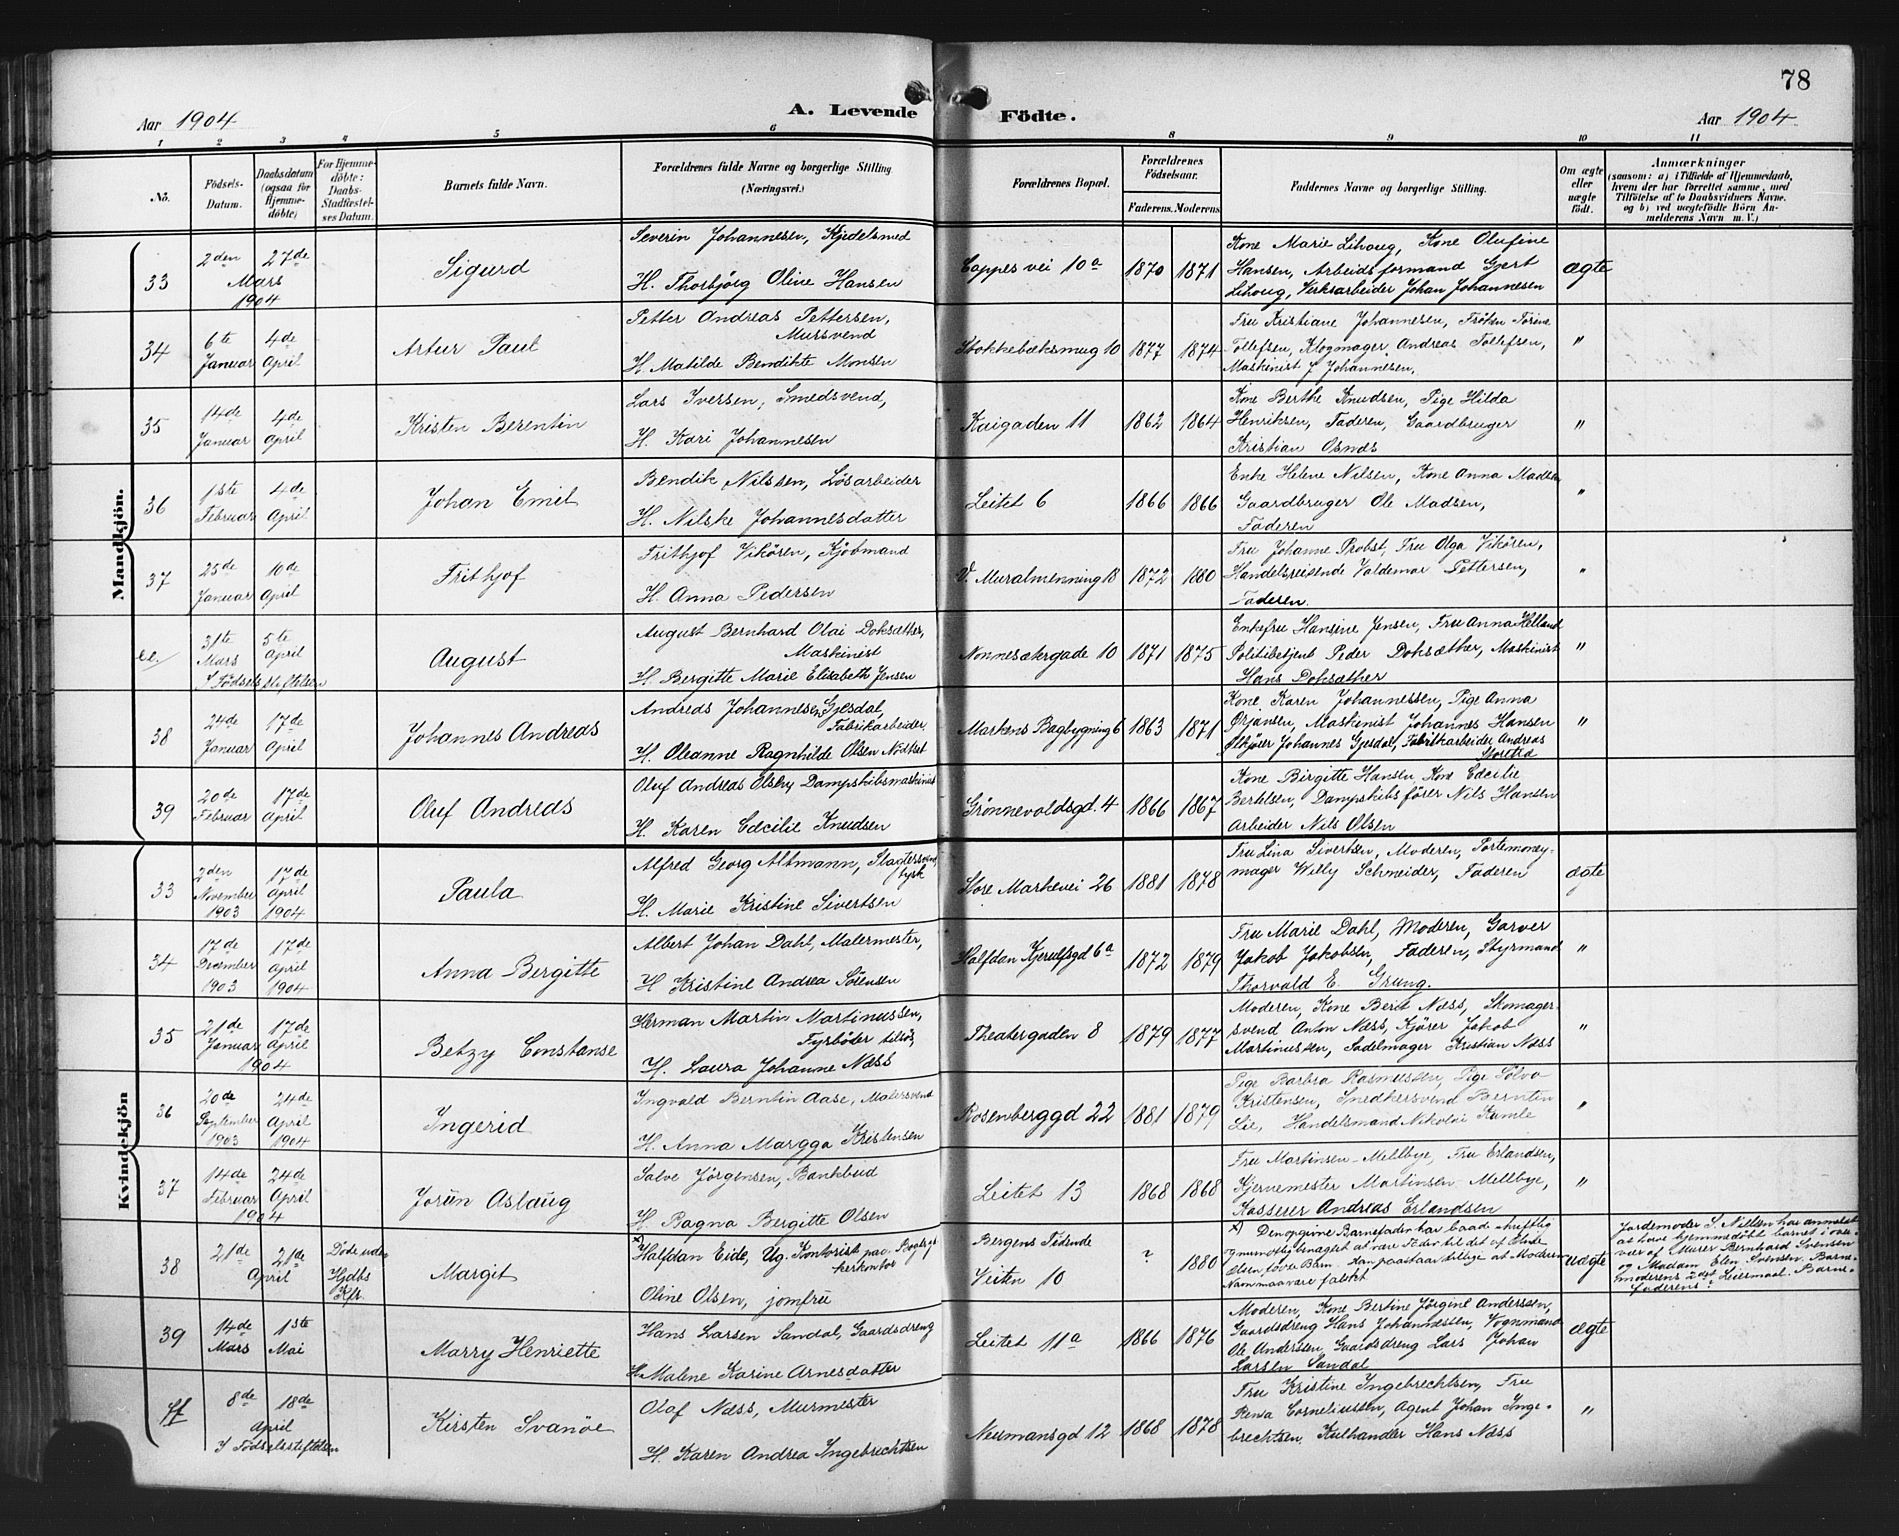 78
Aar 1904
A. Levende Födte.
Aar 1904
1 2 3 4 5 6 8 9 10 11
No.
Födsels-Datum.
Daabsdatum (ogsaa for Hjemme-döbte)
For Hjemme-döbte: Daabs-Stadfæstel-ses Datum.
Barnets fulde Navn.
Forældrenes fulde Navne og borgerlige Stilling (Næringsvei.)
Forældrenes Bopæl.
Forældrenes Födselsaar.
Faderens. Moderens
Faddernes Navne og borgerlige Stilling.
Om ægte eller uægte födt.
Anmærkninger
(saasom: a) i Tilfælde af Hjemmedaab, hvem der har forrettet samme, med Tilföielse af to Daabsvidners Navne. og b) ved uægtefödte Börn An-melderens Navn m. V.)
Mandkjön.
33 2den 27de Mars 1904
Sigurd
Severin Johannesen, Kjedelsmed
H. Thorbjörg Oline Hansen
Cappes vei 10a 1870 1871
Kone Marie Lihoug, Kone Olufine
Hansen, Arbeidsformand Gjert
Lihoug, Verksarbeider Johan Johannesen
ægte
34 6te Januar 4de April
Artur Paul
Petter Andreas Pettersen,
Mursvend
H. Matilde Bendikte Monsen
Stokkebæksmug 10 1877 1874
Fru Kristiane Johannesen, Fröken Torine
Tollefsen, Klogmager Andreas Tollefsen,
Maskinist J Johannesen,
"
35 14de Januar 4de April
Kristen Berentin
Lars Iversen, Smedsvend,
H. Kari Johannesen
Kaigaden 11 1862 1864
Kone Berthe Knudsen, Pige Hilda
Henriksen, Faderen, Gaardbruger
Kristian Osnæs
"
36 1ste Februar 4de April
Johan Emil
Bendik Nilssen, Lösarbeider
H. Nilske Johannesdatter
Leitet 6 1866 1866
Enke Helene Nilsen, Kone Anna Madsen
Gaardbruger Ole Madsen,
Faderen
"
37 25de Januar 10de April
Frithjof
Frithjof Vikören, Kjöbmand
H. Anna Pedersen
V. Muralmenning 18 1872 1880
Fru Johanne Probst, Fru Olga Vikören,
Handelsreisende Valdemar Pettersen,
Faderen.
"
31te Mars 5te April
I Födselsstiftelsen
August
August Bernhard Olai Doksæther,
Maskinist
H. Bergitte Marie Elisabeth Jensen
Nonnesætergade 10 1871 1875
Enkefru Hansine Jensen, Fru Anna Helland
Politibetjent Peder Doksæther, Maskinist
Hans Doksæther
"
38 24de Januar 17de April
Johannes Andreas
Andreas Johannesen Gjesdal,
Fabrikarbeider
H. Oleanne Ragnhilde Olsen Nödtvet
Markens Bagbygning 6 1863 1871
Kone Karen Johannessen, Pige Anna
Örjansen, Maskinist Johannes Hansen
Ølkjører Johannes Gjesdal, Fabrikarbeider Andreas
39 20de Februar 17de April
Oluf Andreas
Oluf Andreas Olsen, Dampskibsmaskinist
H. Karen Cecilie Knudsen
Grønnevoldsgd. 4 1866 1867
Kone Birgitte Hansen, Kone Cecilie
Berhlsen, Dampskibsfører Nils Hansen
Arbeider Nils Olsen
Kvindekjön
33 2den November 1903 17de April 1904
Paula
Alfred Georg Altmann, Slagtersvend
tysk
H. Marie Kristine Sivertsen
Store Markevei 26 1881 1878
Fru Lina Sivertsen, Moderen, Portemoney-
mager Willy Schneider, Faderen
ægte
34 17de December 1903 17de April 1904
Anna Bergitte
Albert Johan Dahl, Malermester,
H Kristine Andrea Sörensen
Halfdan Kjerulfsgd 6a 1872 1879
Fru Marie Dahl, Moderen, Garver
Jakob Jakobsen, Faderen, Styrmand
Thorvald E. Grung.
"
35 21de Januar 17de April 1904
Betzy Constanse
Herman Martin Martinussen,
Fyrböder tilsös
H. Laura Johanne Næss
Theatergaden 8 1879 1877
Moderen, Kone Berit Næss, Skomager-
svend Anton Næss, Kjörer Jakob
Martinussen, Sadelmager Kristian Næss
"
36 20de September 1903 24de April 1904
Ingerid
Ingvald Berntin Aase, Malersvend
H. Anna Margga Kristensen
Rosenberggd 22 1881 1879
Pige Barbra Rasmussen, Pige Solva
Kristensen, Snedkersvend Berntin
Lie, Handelsmand Nikolai Kamle
"
37 14de Februar 24de April 1904
Jorün Aslaug
Salve Jörgensen, Bankbud
H. Ragna Bergitte Olsen
Leitet 13 1868 1868
Fru Martinsen-Mellbye, Fru Erlandsen,
Hjernemester Martinsen Mellbye,
Kasserer Andreas Erlandsen
"
38 21de 21de April
Døde uden Hjdbs Kfr.
Margit
x) Halfdan Eide, Ug. Kontorist paa Boglryk
kerkontor
Oline Olsen, jomfru
Bergens Tidende
Veiten 10 ? 1880
x) Den opgivne Barnefader har baade skriftlig
og mundtlig benægtet at være Fader til det af Oline
Olsen fødte Barn. Han paastaar tillige at Moderens
Navn maa være falskt
uægte
Jordemoder S. Nilsen har anmeldt
at have hjemmedöbt barnet i over-
vær af Murer Bernhard Svensen
og Madam Elen Svensen. Barne-
moderens 2det Leiermaal. Barne-
faderens?
39 14de Mars 1ste Mai
Marry Henriette
Hans Larsen Sandal, Gaardsdreng
H. Malene Karine Arnesdatter
Leitet 11a 1866 1876
Moderen, Kone Bertine Jörgine Anderssen,
Gaardsdreng Hans Johannessen, Vognmand
Ole Anderssen, Gaardsdreng Lars Johan
Larsen Sandal
ægte
8de 18de April
I Födselsstiftelsen
Kirsten Svanöe
Olaf Næss, Murmester
H. Karen Andrea Ingebrechtsen
Neumansgd 12 1868 1878
Fru Kristine Ingebrechtsen, Fru
Rena Corneliussen, Agent Johan Inge-
brechtsen, Kulhandler Hans Næss
"